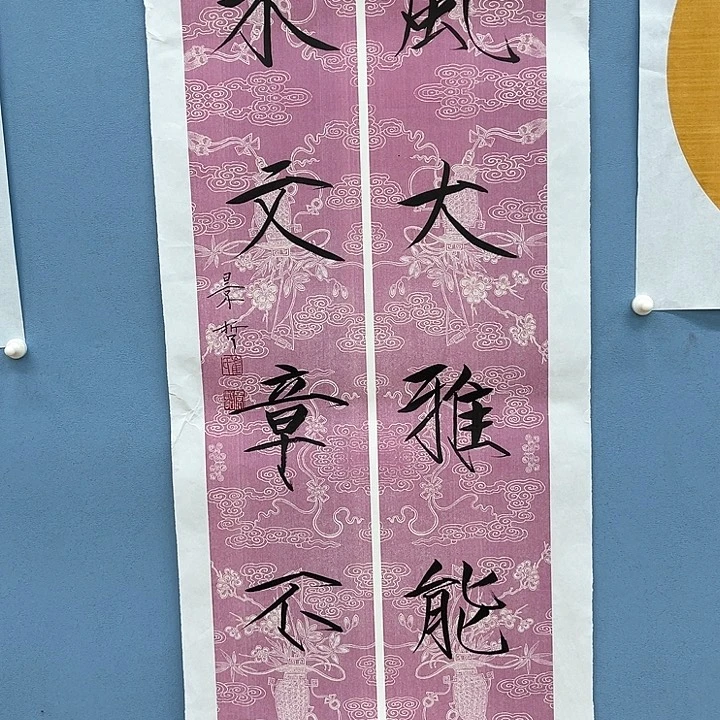 風大雅能
水文章不
景哲